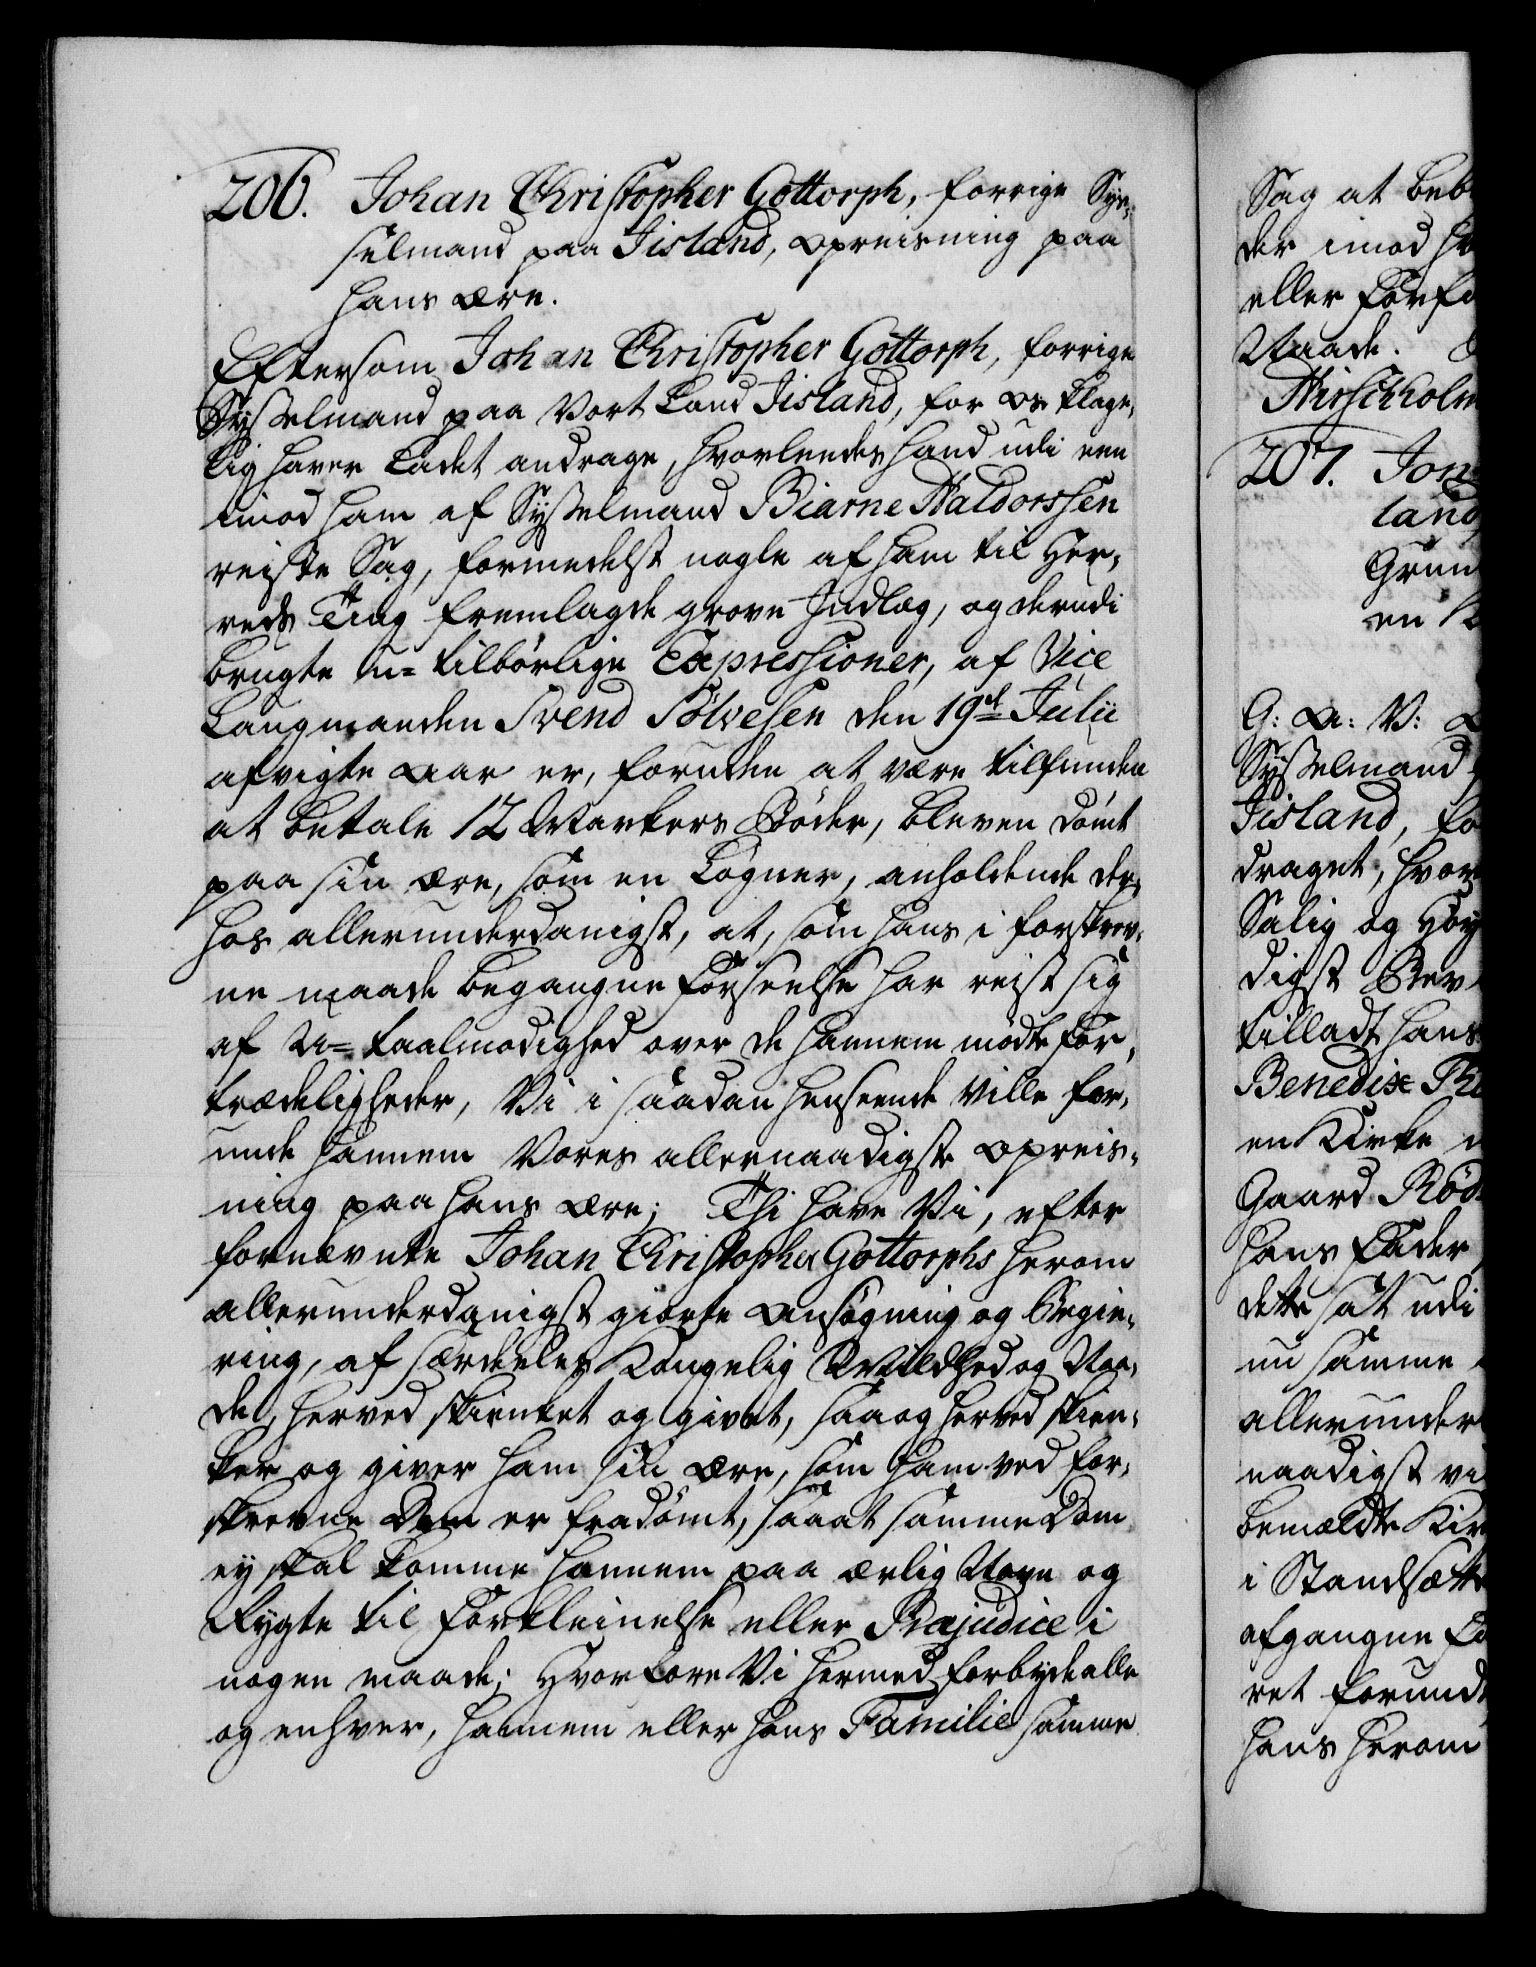 206. Johan Christopher Gottorph, forrige Sys,
selmand paa Jisland, opreisning paa
hans ære.
Eftersom Johan Christopher Gottorph, forrige
Sysselmand paa Vort Land Jisland, for os klage,
lig haver ladet andrage, hvorlendes hand udi een
imod ham af Sysselmand Biarne Haldorssen
reiste Sag, formedelst nogle af ham til Her,
reds Ting fremlagde grove Indlæg, og derudi
brugte u= tilbørlige Expressioner, af Vice
Laugmanden Svend Sølvesen den 19de Julii
afvigte aar er, foruden at være tilfunden
at betale 12 Markers Bøder, bleven dømt
paa sin ære, som en Løgner, anholdende der,
hos allerunderdanigst, at, som hans i forskrev,
ne maade begangne Forseelse har reist sig
af U= taalmodighed over de hannem mødte For,
trædeligheder, Vi i saadan henseende Ville for,
unde hannem Vores allernaadigste opreis,
ning paa hans ære; Thi have Vi, efter
fornævnte Johan Christopher Gottorphs herom
allerunderdanigst giorte ansøgning og Begie,
ring, af særdeles Kongelig Mildhed og Naa,
de, herved skienket og givet, saa og herved skien,
ker og giver ham sin ære, som ham ved for,
skrevne Dom er fradømt, saa at samme Dom
ey skal komme hannem paa ærlig Navn og
Rygte til Forkleinelse eller Præjudice i
nogen maade; Hvorfore Vi hermed forbyde alle
og enhver, hannem eller hans Familie samme
Sag at beb
der imod h
eller Forf
Naade.
Hirschholm
207. Jon
land
Grun
en
G: A: V:
Sysselmand
Jisland, fo
draget, hvor
Salig og Høy
digst Bev
tilladt hans
Benedix Th
en Kirke
Gaard Rød
hans Fader
dette sat udi
nu samme
allerunder
naadigst vi
bemældte Kir
i Standsætte
afgangne Fa
ret forundt
hans herom